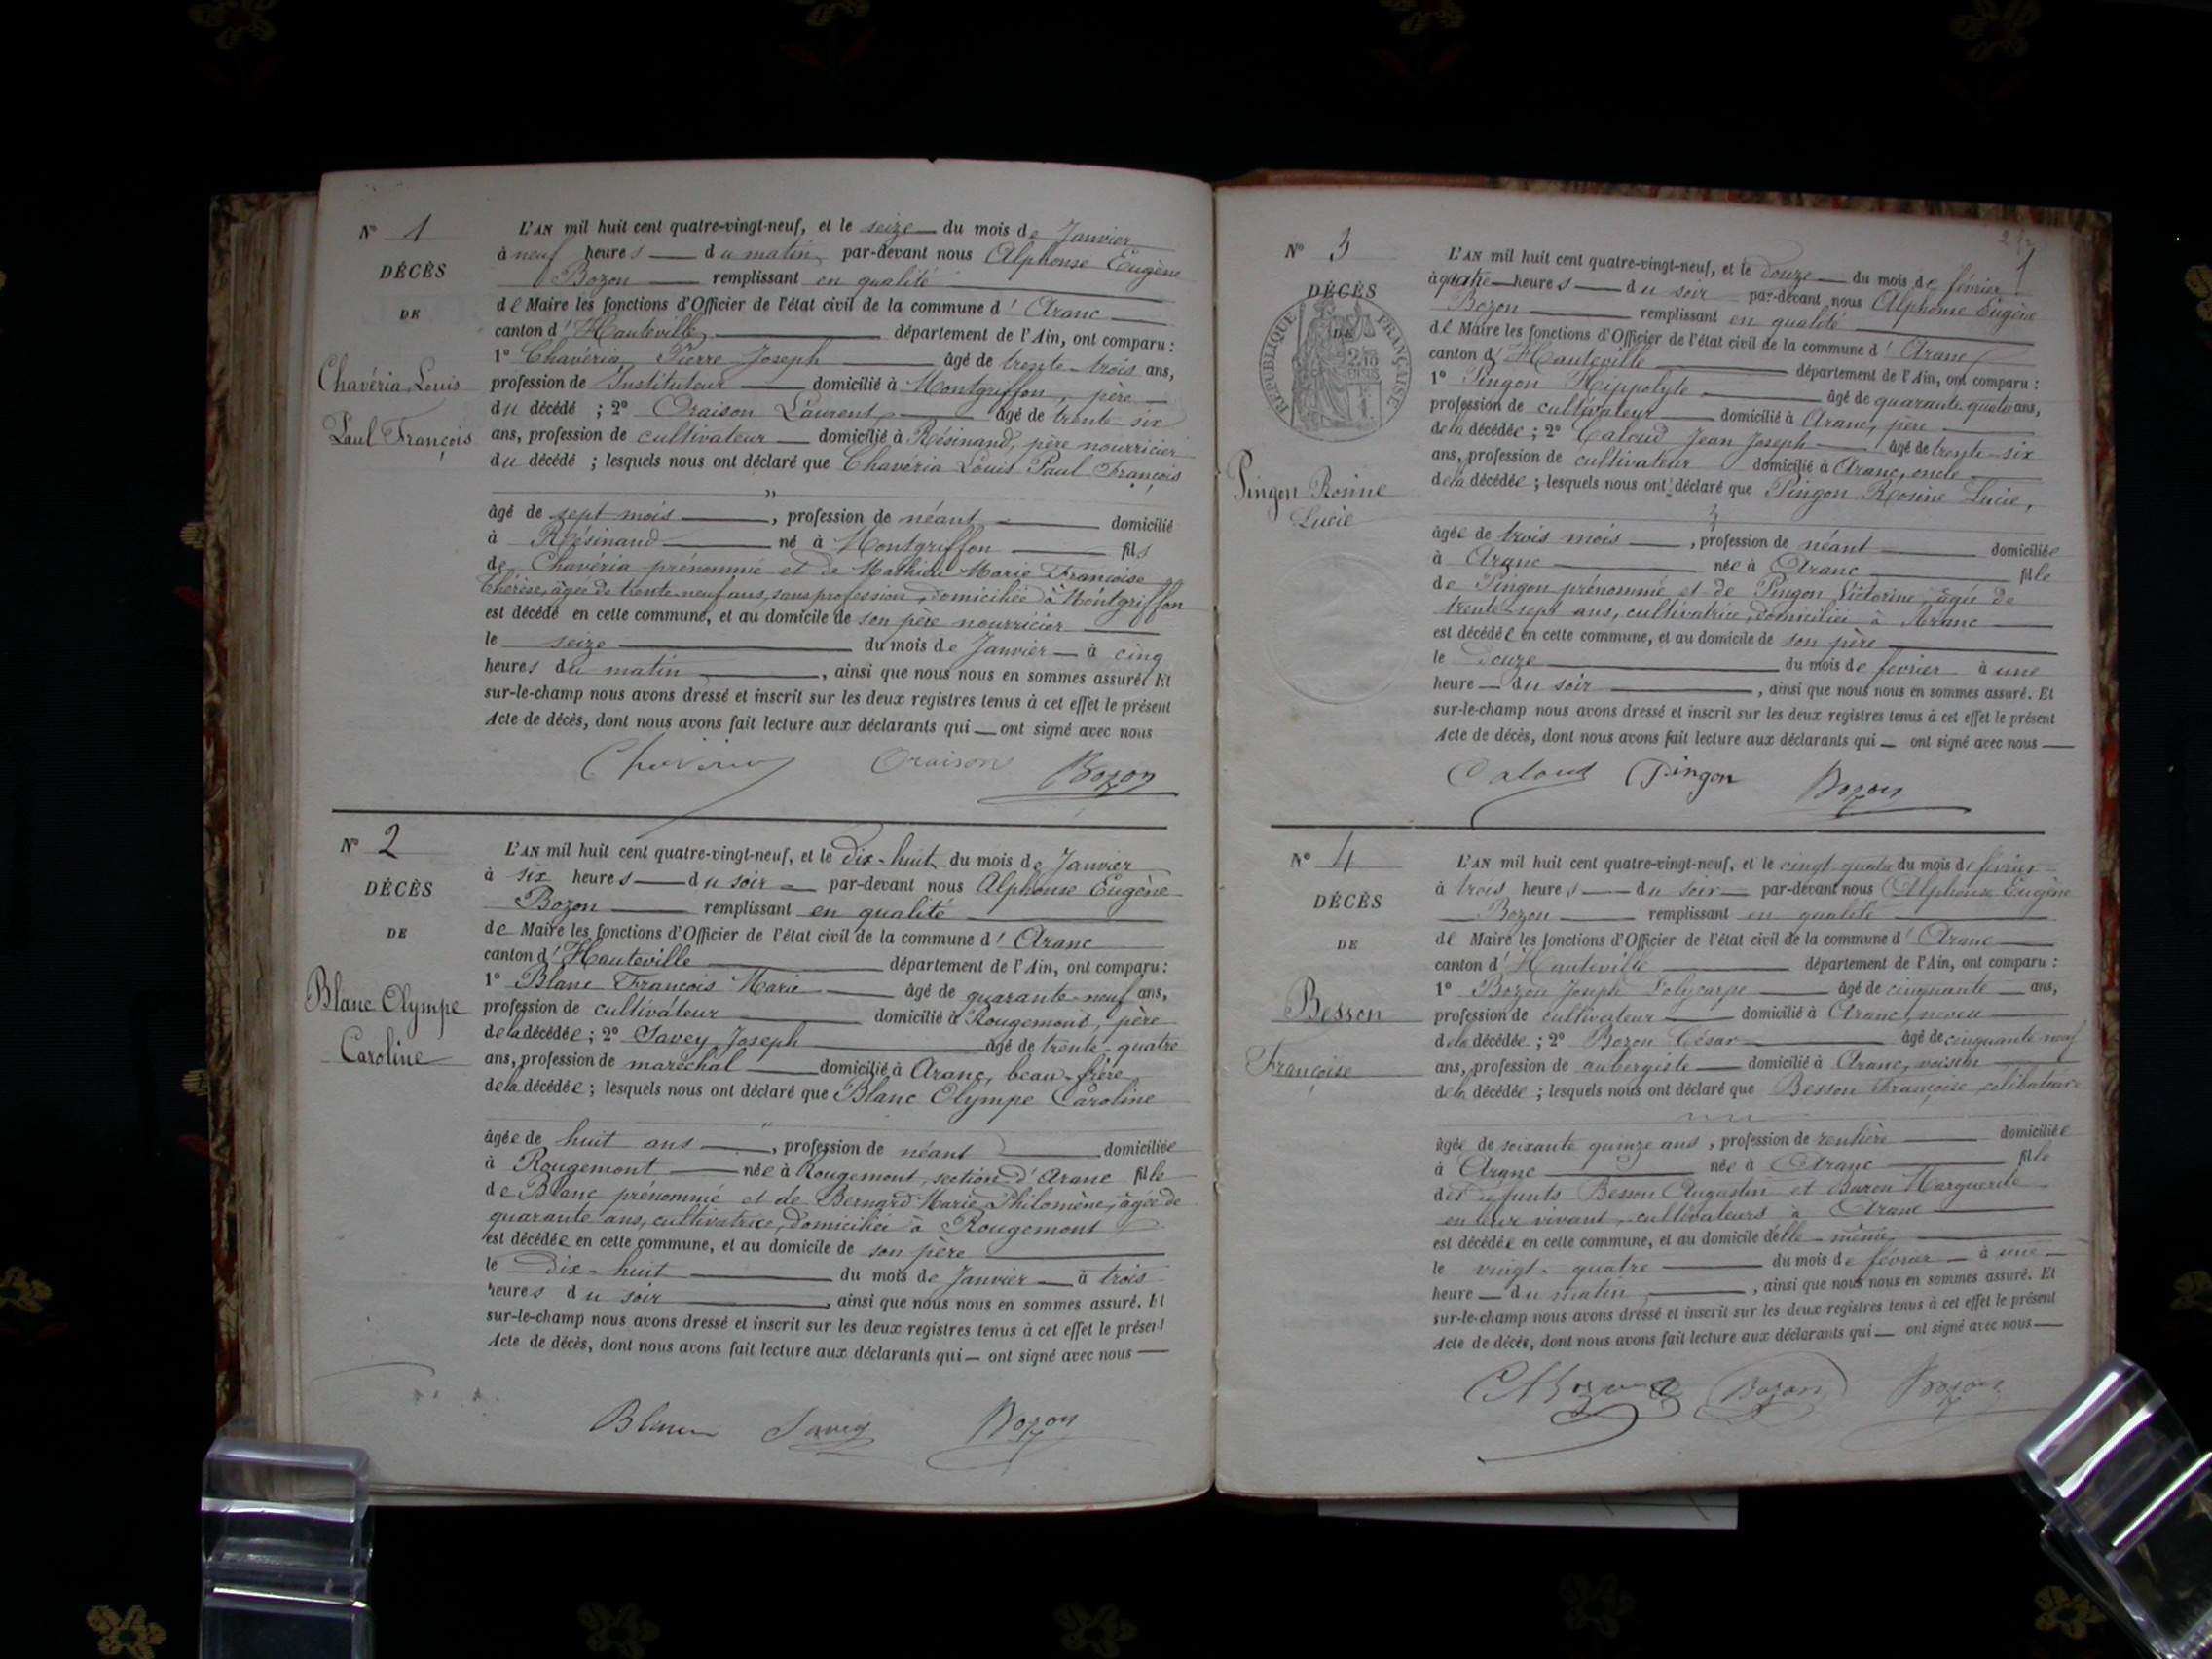 N° 1
DÉCÈS
DE
Chavéria Louis
Paul François
L'AN mil huit cent quatre-vingt-neuf, et le seize du mois de Janvier
à neuf heures du matin, par-devant nous Alphonse Eugène
Bozon remplissant en qualité
de Maire les fonctions d'Officier de l'état civil de la commune d'Aranc
canton d'Hauteville, département de l'Ain, ont comparu :
1° Chavéria Pierre Joseph âgé de trente-trois ans,
profession de Instituteur domicilié à Montgriffon, père
du décédé ; 2° Oraison Laurent, âgé de trente-six
ans, profession de cultivateur domicilié à Résinand, père nourricier
du décédé ; lesquels nous ont déclaré que Chavéria Louis Paul François
"
âgé de sept mois, profession de néant domicilié
à Résinand né à Montgriffon fils
de Chavéria prénommé et de Mathieu Marie Françoise
Thérèse, âgée de trente-neuf ans, sans profession, domiciliée à Montgriffon
est décédé en cette commune, et au domicile de son père nourricier
le seize du mois de Janvier à cinq
heures du matin, ainsi que nous nous en sommes assuré. Et
sur-le-champ nous avons dressé et inscrit sur les deux registres tenus à cet effet le présent
Acte de décès, dont nous avons fait lecture aux déclarants qui ont signé avec nous
Chavéria Oraison Bozon
N° 2
DÉCÈS
DE
Blanc Olympe
Caroline
L'AN mil huit cent quatre-vingt-neuf, et le dix-huit du mois de Janvier
à six heures du soir par-devant nous Alphonse Eugène
Bozon remplissant en qualité
de Maire les fonctions d'Officier de l'état civil de la commune d'Aranc
canton d'Hauteville département de l'Ain, ont comparu :
1° Blanc François Marie âgé de quarante-neuf ans,
profession de cultivateur domicilié à Rougemont, père
de la décédée ; 2° Savey Joseph âgé de trente-quatre
ans, profession de maréchal domicilié à Aranc, beau-frère
de la décédée ; lesquels nous ont déclaré que Blanc Olympe Caroline
"
âgée de huit ans, profession de néant domiciliée
à Rougemont née à Rougemont, section d'Aranc fille
de Blanc prénommé et de Bernard Marie Philomène, âgée de
quarante ans, cultivatrice, domiciliée à Rougemont
est décédée en cette commune, et au domicile de son père
le dix-huit du mois de Janvier à trois
heures du soir, ainsi que nous nous en sommes assuré. Et
sur-le-champ nous avons dressé et inscrit sur les deux registres tenus à cet effet le présent
Acte de décès, dont nous avons fait lecture aux déclarants qui ont signé avec nous
Blanc Savey Bozon
N° 3
DÉCÈS
DE
RÉPUBLIQUE FRANÇAISE
Pingon Rosine
Lucie
1
L'AN mil huit cent quatre-vingt-neuf, et le douze du mois de février
à quatre heures du soir par-devant nous Alphonse Eugène
Bozon remplissant en qualité
de Maire les fonctions d'Officier de l'état civil de la commune d'Aranc
canton d'Hauteville département de l'Ain, ont comparu :
1° Pingon Hippolyte âgé de quarante-quatre ans,
profession de cultivateur domicilié à Aranc, père
de la décédée ; 2° Caloud Jean Joseph âgé de trente-six
ans, profession de cultivateur domicilié à Aranc, oncle
de la décédée ; lesquels nous ont déclaré que Pingon Rosine Lucie,
âgée de trois mois, profession de néant domiciliée
à Aranc née à Aranc fille
de Pingon prénommé et de Pingon Victorine, âgée de
trente-sept ans, cultivatrice, domiciliée à Aranc
est décédée en cette commune, et au domicile de son père
le douze du mois de février à une
heure du soir, ainsi que nous nous en sommes assuré. Et
sur-le-champ nous avons dressé et inscrit sur les deux registres tenus à cet effet le présent
Acte de décès, dont nous avons fait lecture aux déclarants qui ont signé avec nous
Caloud Pingon Bozon
N° 4
DÉCÈS
DE
Besson
Françoise
L'AN mil huit cent quatre-vingt-neuf, et le vingt-quatre du mois de février
à trois heures du soir par-devant nous Alphonse Eugène
Bozon remplissant en qualité
de Maire les fonctions d'Officier de l'état civil de la commune d'Aranc
canton d'Hauteville département de l'Ain, ont comparu :
1° Bozon Joseph Polycarpe âgé de cinquante ans,
profession de cultivateur domicilié à Aranc, neveu
de la décédée ; 2° Bozon César âgé de cinquante-neuf
ans, profession de aubergiste domicilié à Aranc, voisin
de la décédée ; lesquels nous ont déclaré que Besson Françoise, célibataire
âgée de soixante quinze ans, profession de rentière domiciliée
à Aranc née à Aranc fille
des défunts Besson Augustin et Bozon Marguerite
en leur vivant, cultivateurs à Aranc
est décédée en cette commune, et au domicile d'elle-même
le vingt-quatre du mois de février à une
heure du matin, ainsi que nous nous en sommes assuré. Et
sur-le-champ nous avons dressé et inscrit sur les deux registres tenus à cet effet le présent
Acte de décès, dont nous avons fait lecture aux déclarants qui ont signé avec nous
Bozon Bozon